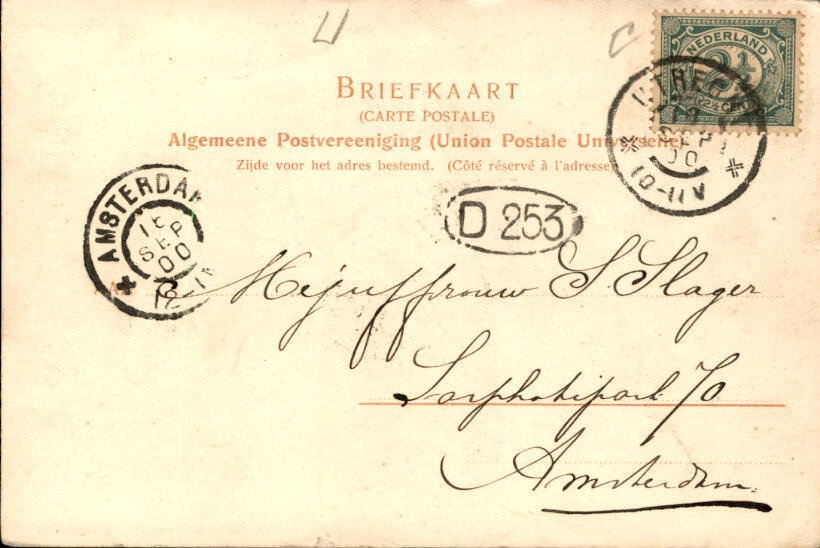 NEDERLAND
2½
BRIEFKAART
(CARTE POSTALE)
Algemeene Postvereeniging (Union Postale Universelle)
Zijde voor het adres bestemd. (Côté réservé à l'adresse)
UTRECHT
SEP
00
10-11V
AMSTERDAM
SEP
00
D 253
Mejuffrouw S. Slager
Sarphatipark 70
Amsterdam.